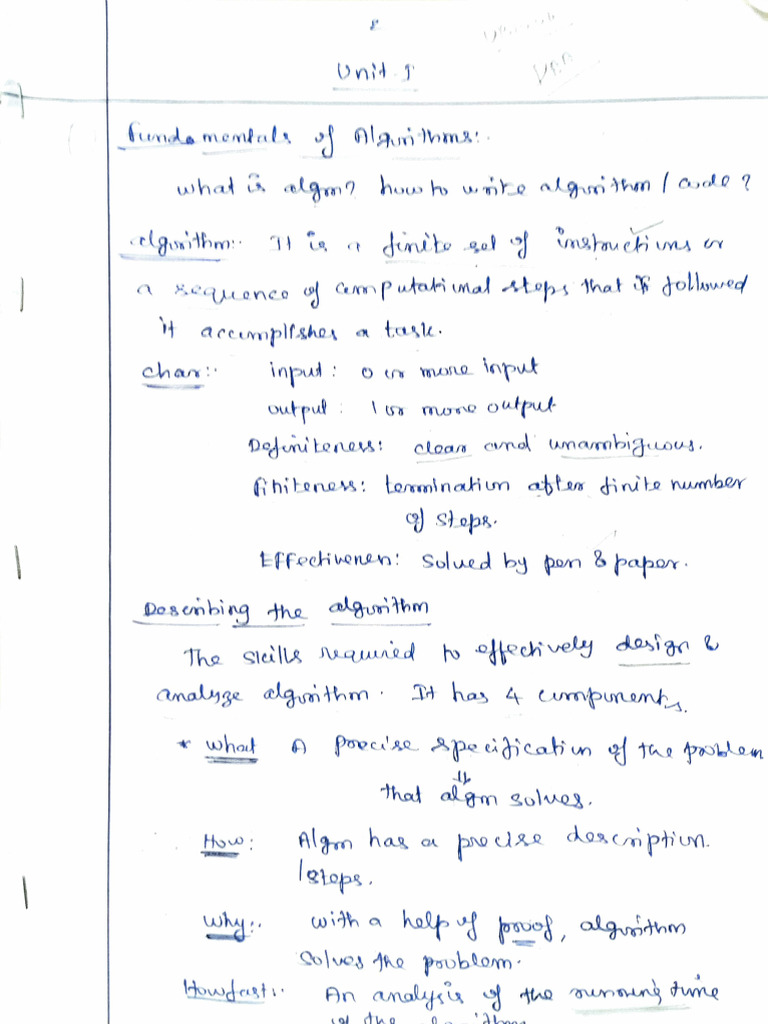 Unit I
Fundamentals of Algorithms:.
what is algm? how to write algorithm / code?
Algorithm:. It is a finite set of instructions or
a sequence of computational steps that if followed
it accomplishes a task.
char:. input: 0 or more input
output: 1 or more output
Definiteness: clear and unambiguous.
finiteness: termination after finite number
of steps.
Effectiveness: solved by pen & paper.
Describing the algorithm
The skills required to effectively design &
analyze algorithm. It has 4 components.
* what A precise specification of the problem
that algm solves.
How: Algm has a precise description.
/steps.
why:. with a help of proof, algorithm
solves the problem.
How fast:. An analysis of the running time
of the algorithm